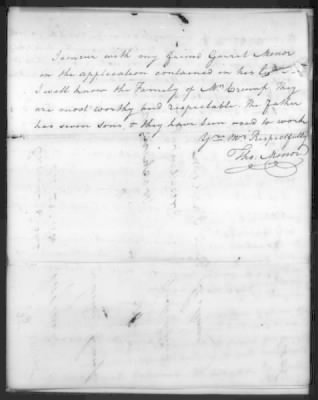 I concur with my friend Garret Minor
in the application contained in his
I well know the Family of Mr Crump. They
are most worthy and respectable. The father
has seven sons, & they have been used to work
Yrs Mo Respectfully
Tho. Minor